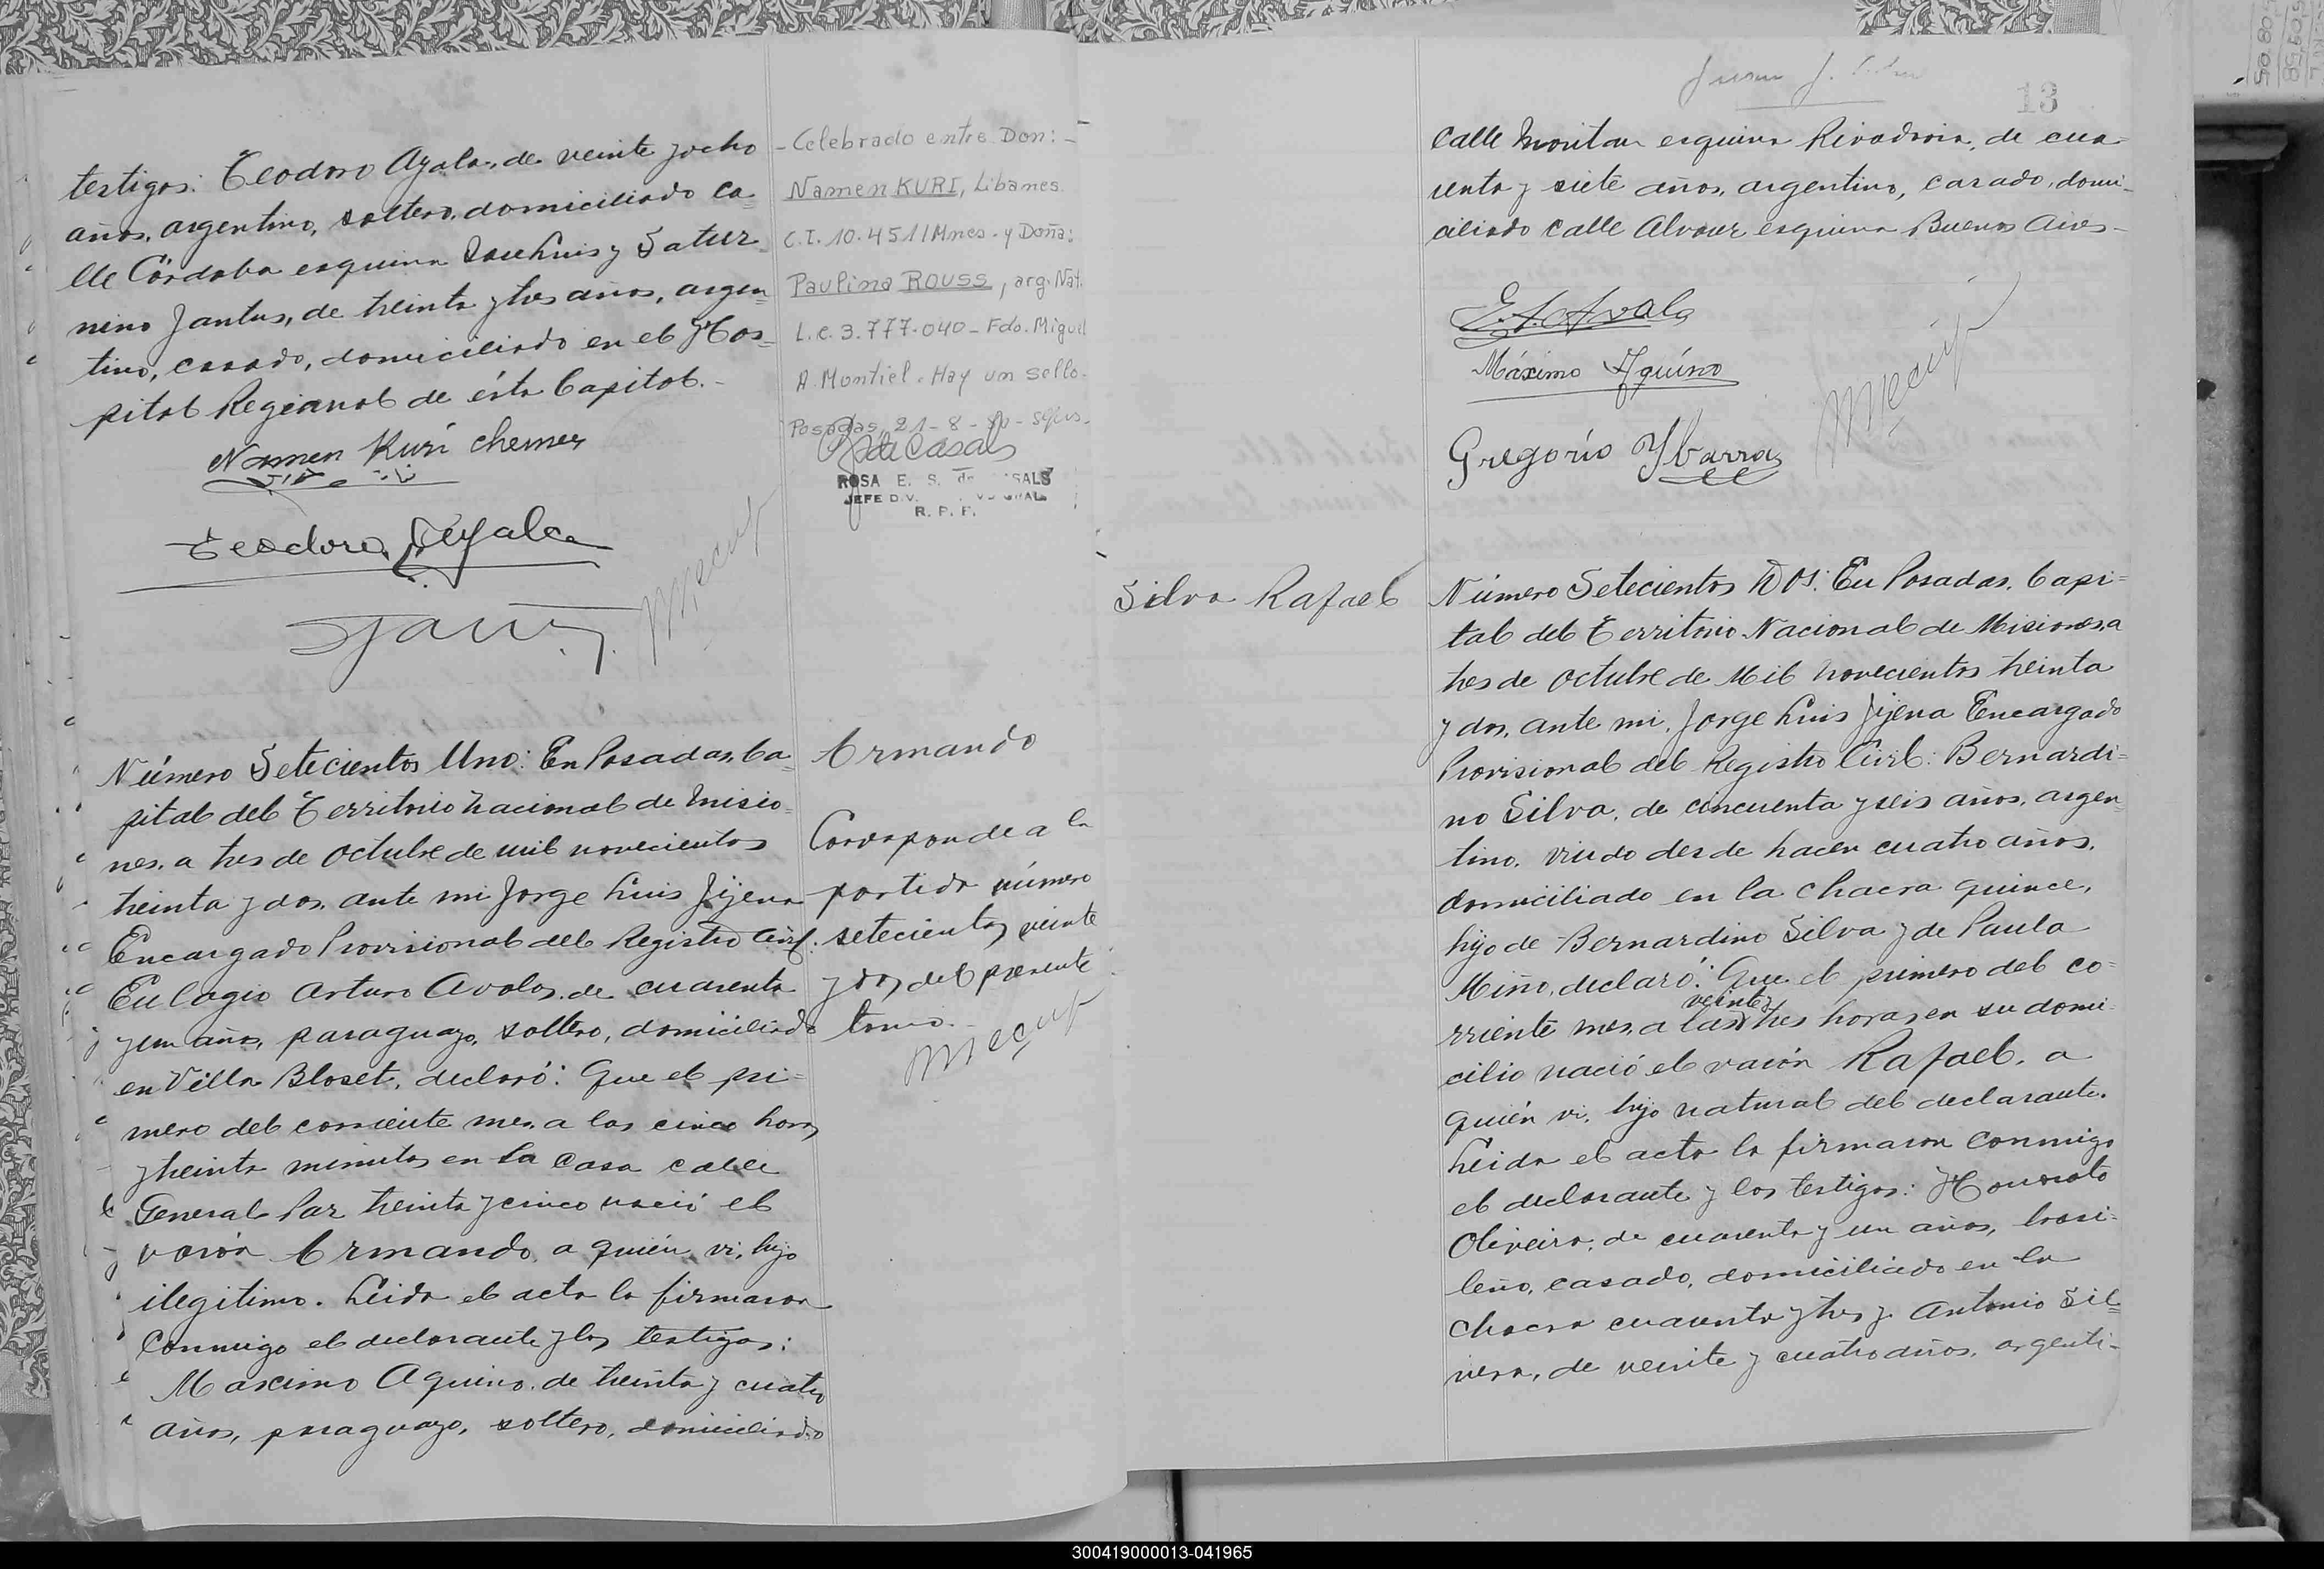 testigos: Teodoro Ayala, de veinte y ocho
años, argentino, soltero, domiciliado ca-
lle Córdoba esquina San Luis y Satur-
nino Jantus, de treinta y tres años, argen-
tino, casado, domiciliado en el Hos-
pital Regional de ésta Capital.-
Namen Kuri Chemes
Teodoro Ayala
- Celebrado entre Don: -
Namen KURI, Libanes.
C.I. 10.451/Mnes. y Doña:
Paulina ROUSS, arg. Nat.
L.C. 3.777.040 - Fdo. Miguel
A. Montiel. Hay un sello.
Posadas, 21-8-80-
R de Casals
ROSA E. S. de CASALS
JEFE DIV.
R. P. P.
Número Setecientos Uno: En Posadas, Ca-
pital del Territorio Nacional de Misio-
nes, a tres de Octubre de mil novecientos
treinta y dos, ante mi Jorge Luis Jijena
Encargado Provisional del Registro Civil:
Eulogio Arturo Avalos, de cuarenta
y un años, paraguayo, soltero, domiciliado
en Villa Bloset, declaró: Que el pri-
mero del corriente mes, a las cinco horas
y treinta minutos en la casa calle
General Paz treinta y cinco nació el
varón Armando, a quién vi, hijo
ilegitimo. Leida el acta la firmaron
conmigo el declarante y los testigos:
Maximo Aquino, de treinta y cuatro
años, paraguayo, soltero, domiciliado
Armando
Corresponde a la
partida número
setecientos veinte
y dos del presente
tomo.-
13
calle Moritan esquina Rivadavia, de cua-
renta y siete años, argentino, casado, domi-
ciliado calle Alvear esquina Buenos Aires-
E. A. Avalos
Máximo Aquíno
Gregorio Ybarra
Silva Rafael
Número Setecientos Dos: En Posadas, Capi-
tal del Territorio Nacional de Misiones, a
tres de Octubre de Mil novecientos treinta
y dos, ante mi, Jorge Luis Jijena Encargado
Provisional del Registro Civil: Bernardi-
no Silva, de cincuenta y seis años, argen-
tino, viudo desde hacen cuatro años,
domiciliado en la chacra quince,
hijo de Bernardino Silva y de Paula
Miño, declaró: Que el primero del co-
veinte y
rriente mes, a las tres horas, en su domi-
cilio nació el varón Rafael, a
quién vi, hijo natural del declarante.
Leida el acta la firmaron conmigo
el declarante y los testigos: Honorato
Oliveira, de cuarenta y un años, brasi-
leño, casado, domiciliado en la
chacra cuarenta y tres y Antonio Sil-
vera, de veinte y cuatro años, argenti-
300419000013-041965